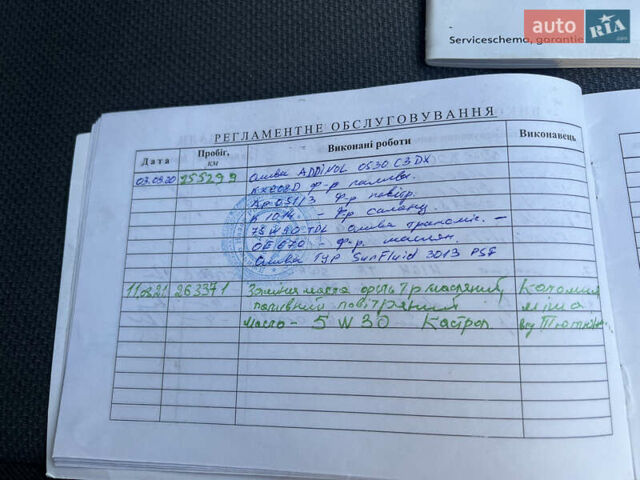 auto RIA .com
Serviceschema, garantie
РЕГЛАМЕНТНЕ ОБСЛУГОВУВАННЯ
Дата Пробіг, км Виконані роботи Виконавець
03.09.20 255299 олива ADDINOL 0530 C3 DX
ф-р палива
ф-р повітр.
K 1014 - Фр салону
75W90 TDL Олива трансміс. -
OE 670 - ф-р. маслян.
Олива TYP SunFluid 3013 PSF
263371 Заміна масла фільтр масляний,
паливний повітряний
масло - 5W30 Кастрол